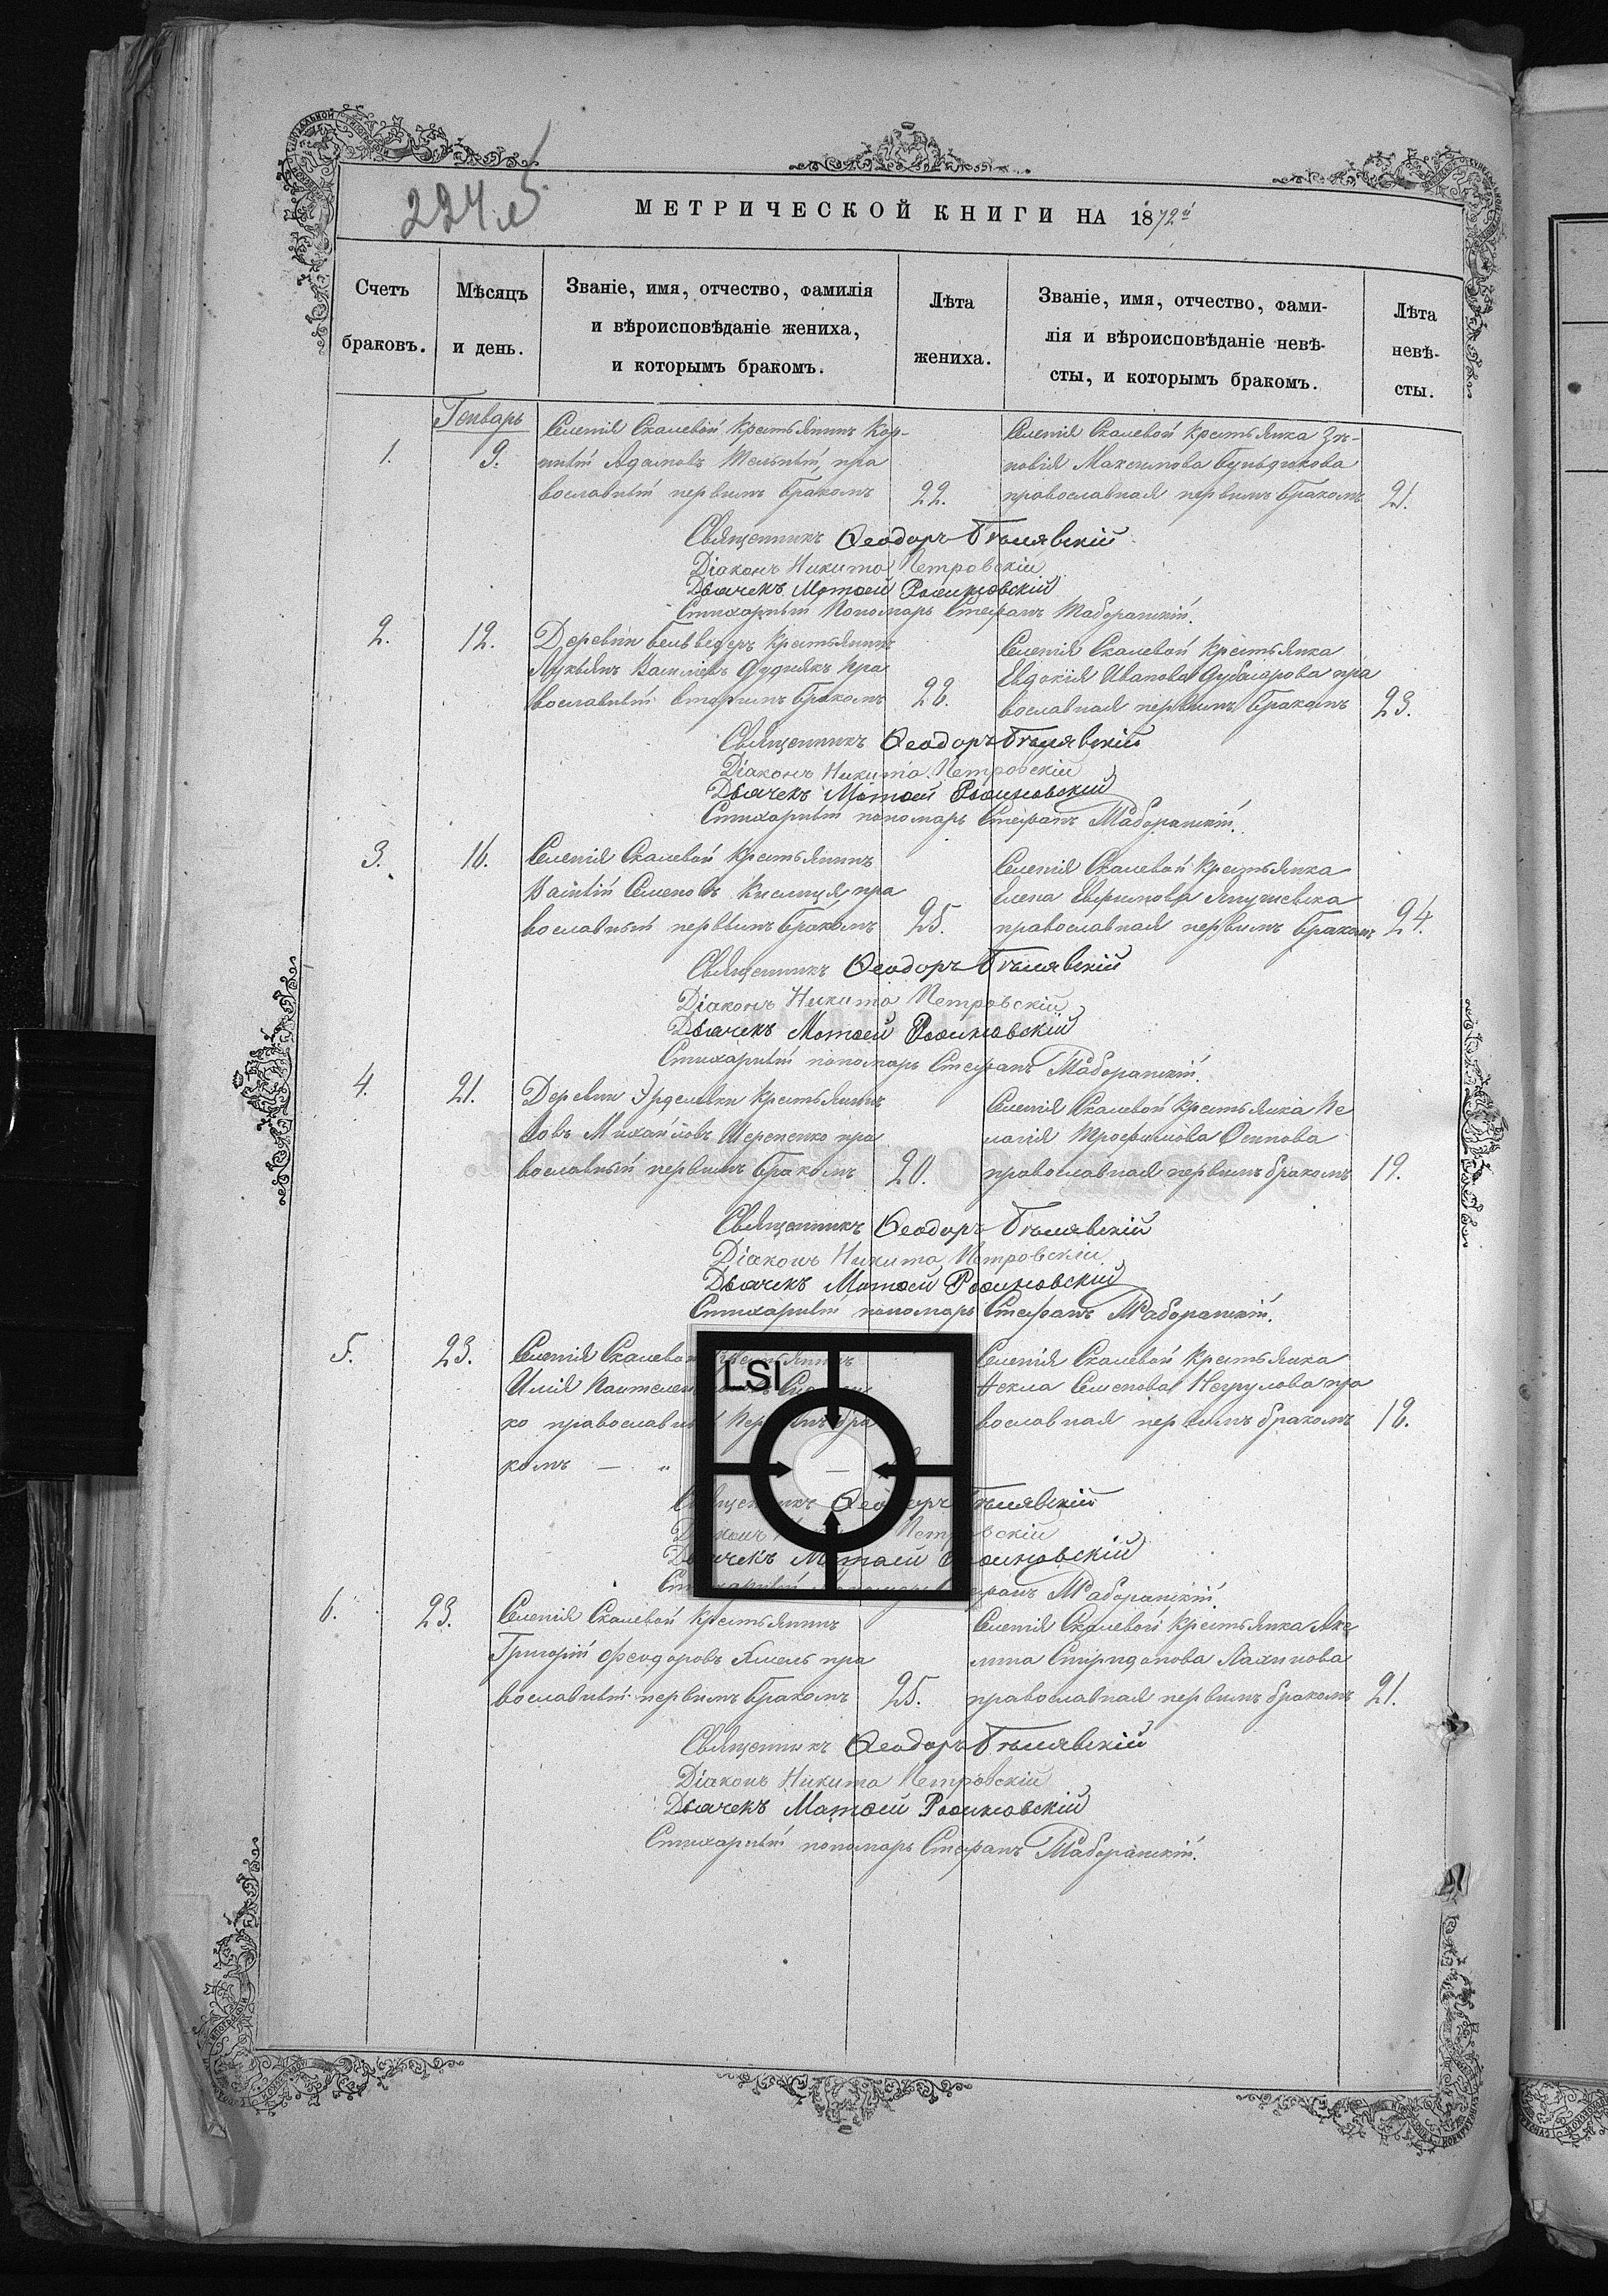 224 об
МЕТРИЧЕСКОЙ КНИГИ НА 1872й
Счетъ браковъ.
Мѣсяцъ и день.
Званіе, имя, отчество, фамилія
и вѣроисповѣданіе жениха,
и которымъ бракомъ.
Лѣта жениха.
Званіе, имя, отчество, фами-
лія и вѣроисповѣданіе невѣ-
сты, и которымъ бракомъ.
Лѣта невѣ-
сты.
Генварь
1.
9.
Селенія Скалевой крестьянинъ Кор-
нилій Адамовъ Мельникъ, пра
вославный первымъ бракомъ
22.
Селенія Скалевой крестьянка Зи-
новія Максимова
православная первымъ бракомъ
21.
Священникъ Ѳеодоръ Бѣлявскій
Діаконъ Никита Петровскій
Дьячекъ Матѳей
Стихарный Пономарь Стефанъ Таборанскій.
2.
12.
Деревни Бельведеръ крестьянинъ
Лукьянъ Васильевъ Дудникъ пра
вославный вторымъ бракомъ
28.
Селенія Скалевой крестьянка
Евдокія Иванова пра
вославная первымъ бракомъ
23.
Священникъ Ѳеодоръ Бѣлявскій
Діаконъ Никита Петровскій
Дьячекъ Матѳей
Стихарный пономарь Стефанъ Таборанскій.
3.
16.
Селенія Скалевой крестьянинъ
Семеновъ Кислиця, пра
вославный первымъ бракомъ
25.
Селенія Скалевой крестьянка
Елена Евфимова Янушевска
православная первымъ бракомъ
24.
Священникъ Ѳеодоръ Бѣлявскій
Діаконъ Никита Петровскій
Дьячекъ Матѳей
Стихарный пономарь Стефанъ Таборанскій.
4.
21.
Деревни Эрделевки крестьянинъ
Іовъ Михайловъ Шерепенко пра
вославный первымъ бракомъ
20.
Селенія Скалевой крестьянка Пе
лагія Трофимова Осипова
православная первымъ бракомъ
19.
Священникъ Ѳеодоръ Бѣлявскій
Діаконъ Никита Петровскій
Дьячекъ Матѳей
Стихарный пономарь Стефанъ Таборанскій.
5.
23.
Селенія Скалевой крестьянинъ
Илія
ко православный первымъ бра
комъ — „
LSI
Селенія Скалевой крестьянка
Ѳекла Семенова Негрулова пра
вославная первымъ бракомъ
18.
Священникъ Ѳеодоръ Бѣлявскій
Діаконъ Никита Петровскій
Дьячекъ Матѳей
Стихарный пономарь Стефанъ Таборанскій.
6.
23.
Селенія Скалевой крестьянинъ
Григорій Феодоровъ Хмель пра
вославный первымъ бракомъ
25.
Селенія Скалевой крестьянка Аки
лина Спиридонова
православная первымъ бракомъ
21.
Священникъ Ѳеодоръ Бѣлявскій
Діаконъ Никита Петровскій
Дьячекъ Матѳей
Стихарный пономарь Стефанъ Таборанскій.